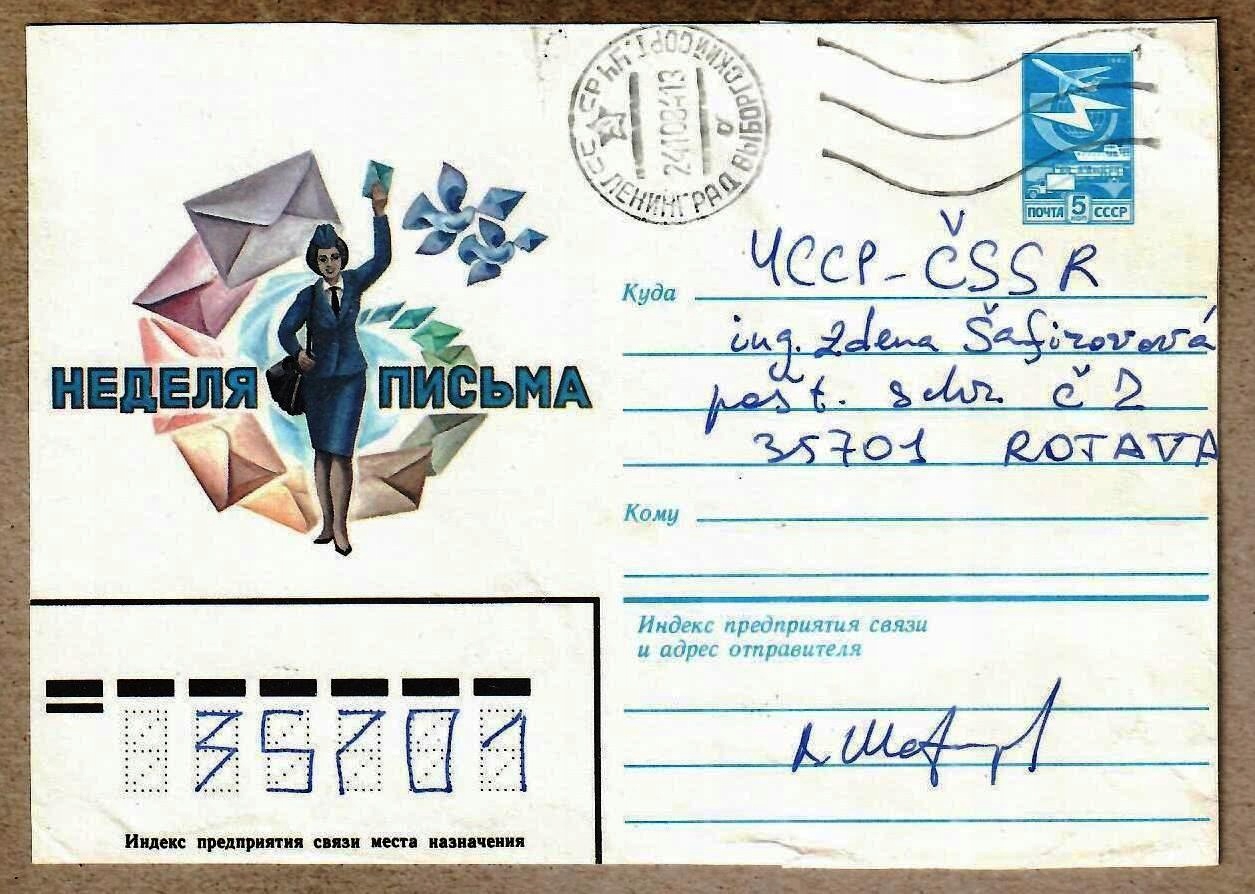 ЛЕНИНГРАД ВЫБОРГСКИЙ СОРТ.
24108413
а
ПОЧТА 5 СССР
НЕДЕЛЯ ПИСЬМА
Куда ЧССР - ČSSR
ing. Zdena Šafirovová
pošt. schr. č 2
35701 ROTAVA
Кому
Индекс предприятия связи
и адрес отправителя
35701
Индекс предприятия связи места назначения